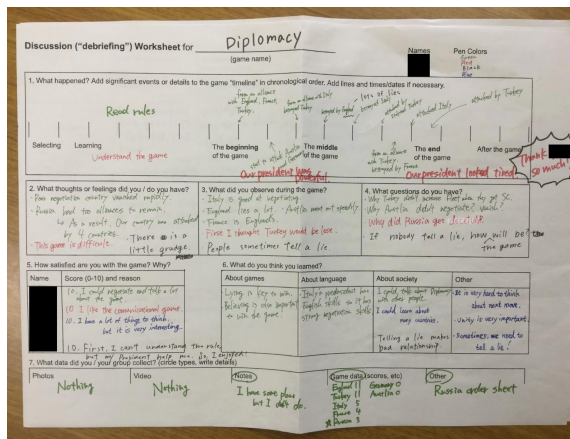 Discussion ("debriefing") Worksheet for Diplomacy
(game name)
Names
Pen Colors
Green
Red
Black
Blue
1. What happened? Add significant events or details to the game "timeline" in chronological order. Add lines and times/dates if necessary.
Read rules
from an alliance
with England, France,
Turkey.
from an alliance with Italy
lots of lies
betrayed by England
betrayed Italy
attacked by
Turkey
attacked Italy
attacked by Turkey
Selecting
Learning
The beginning
of the game
The middle
of the game
The end
of the game
After the game
Understand the game
start to attack Austria
from an alliance
with Turkey.
betrayed by France
Our president was
powerful
Our president looked tired
Thank
so much!
2. What thoughts or feelings did you / do you have?
- Poor negotiation country vanished rapidly.
- Russia had too alliances to remain.
↳ As a result, Our country was attacked
by 4 countries.
- This game is difficult.
- There is a
little grudge.
3. What did you observe during the game?
- Italy is good at negotiating.
- England lies a lot.
- Austria went out speedily.
- France is England's
First I thought Turkey would be lose.
People sometimes tell a lie
4. What questions do you have?
- Why Turkey didn't increase Fleet when they got SC.
- Why Austria didn't negotiate?
Why did Russia get
- If nobody tell a lie, how will be?
the game
5. How satisfied are you with the game? Why?
Name
Score (0-10) and reason
10. I could negotiate and talk a lot
about the game.
10 I like the game.
10. I have a lot of things to think,
but it is very interesting.
10. First, I can't understand the rule,
but my President help me. So, I enjoyed!
6. What do you think you learned?
About games
About language
About society
Other
Lying is key to win.
Believing is also important
to win the game.
Italy's president has
English skills so it has
strong negotiation skills.
I could talk about Diplomacy
with other people.
I could learn about
many countries.
Telling a lie makes
bad relationship.
- It is very hard to think
about next move.
- Unity is very important.
- Sometimes, we need to
tell a lie!
7. What data did you / your group collect? (circle types, write details)
Photos
Nothing
Video
Nothing
Notes
I have some plans
but I didn't do.
Game data (scores, etc)
England 11
Germany 0
Turkey 11
Austria 0
Italy 5
France 4
Russia 3
Other
Russia order sheet